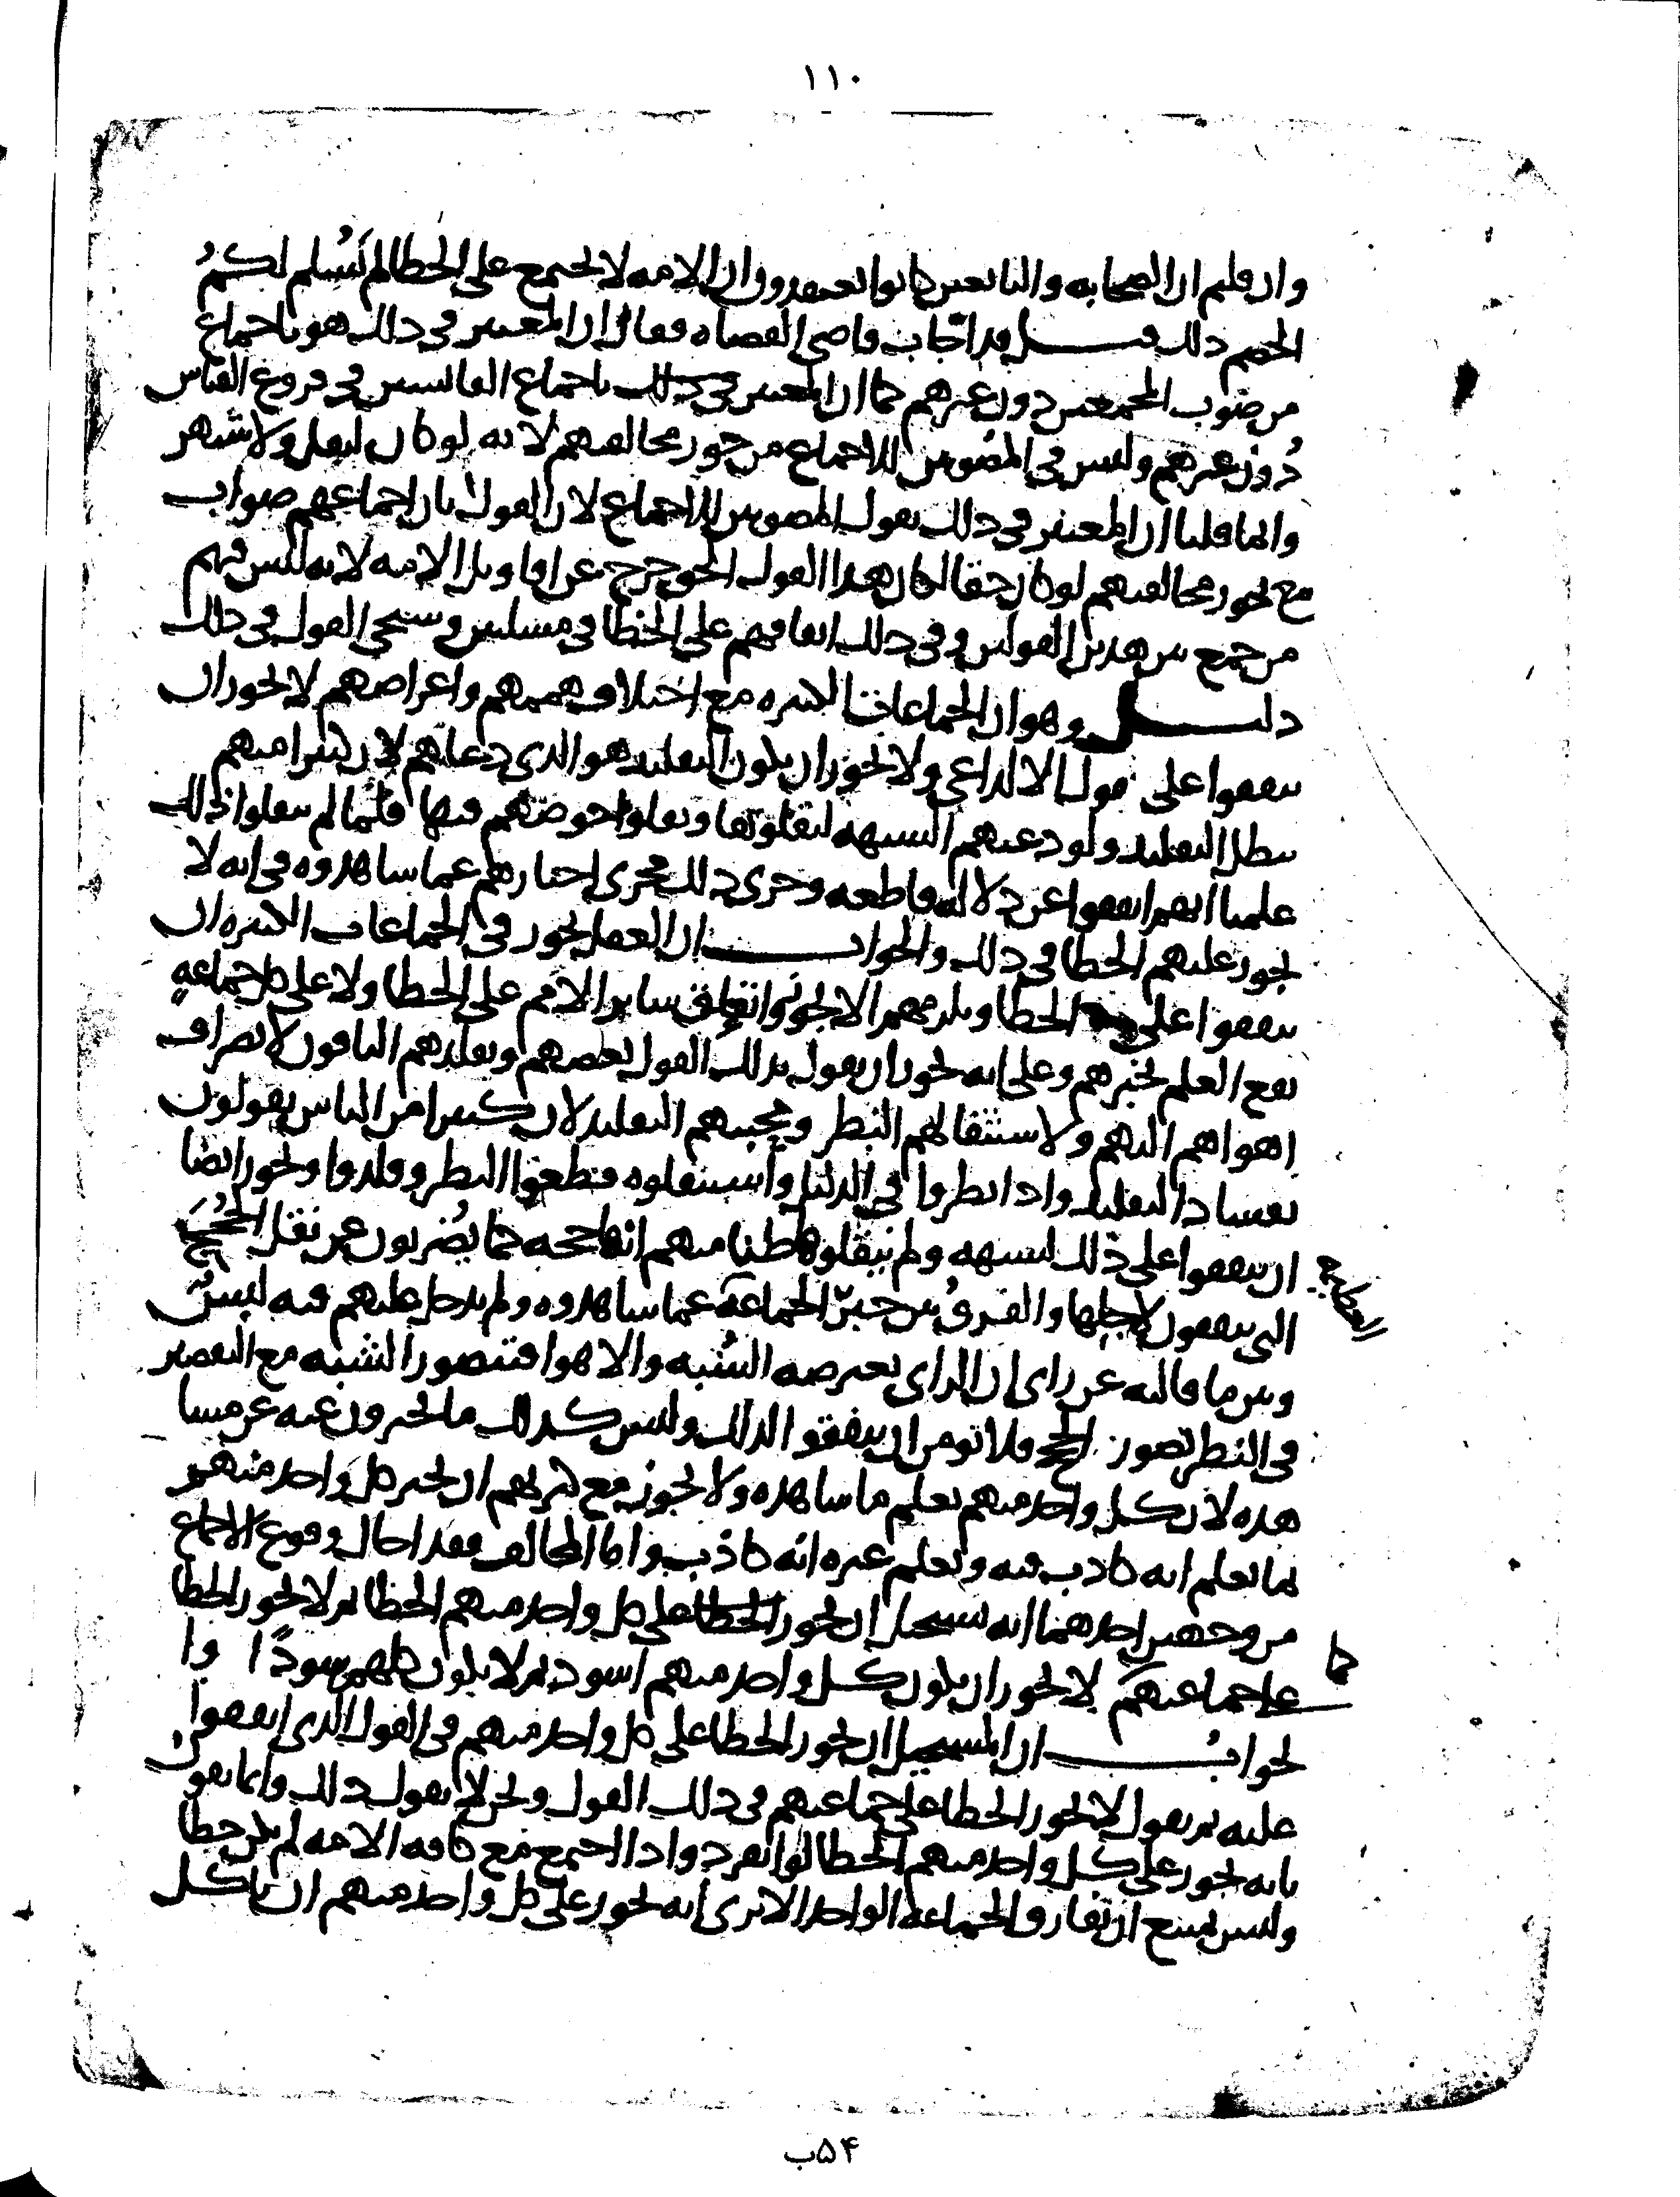 ١١٠
وان قلتم ان الصحابه والتابعين كانوا يعتقدون ان الامه لا تجتمع على الخطا لم نسلم لكم
الخصم ذلك قيل قد اجاب قاضي القضاه فقال ان المعتبر في ذلك هو باجماع
من صوب المجمعين دون غيرهم كما ان المعتبر في ذلك باجماع القائسين في فروع القياس
دون غيرهم وليس في المصوبين للاجماع من جوز مخالفتهم لانه لو كان لنقل ولاشتهر
وانما قلنا ان المعتبر في ذلك بقول المصوبين للاجماع لان القول بان اجماعهم صواب
مع تجويز مخالفتهم لو كان حقا لكان هذا القول الحق خرج عن اقاويل الامه لانه ليس فيهم
من جمع بين هذين القولين وفي ذلك اتفاقهم على الخطا في مسلتين وسيجي القول في ذلك
دليل وهو ان الجماعات الكثيره مع اختلاف هممهم واغراضهم لا يجوز ان
يتفقوا على قول الا لداعي ولا يجوز ان يكون التقليد هو الذي دعاهم لان كثيرا منهم
يبطل التقليد ولو دعتهم الشبهه لنقلوها ونقلوا خوضهم فيها فلما لم ينقلوا ذلك
علمنا انهم اتفقوا عن دلاله قاطعه وجرى ذلك مجرى اخبارهم عما شاهدوه في انه لا
يجوز عليهم الخطا في ذلك والجواب ان العقل يجوز في الجماعات الكثيره ان
يتفقوا على الخطا ويلزمهم الا يجوزوا اتفاق ساير الامم على الخطا ولا على كل جماعه
يقع العلم بخبرهم وعلى انه يجوز ان يقول بذلك القول بعضهم ويقلدهم الباقون لانصراف
اهواهم اليهم ولاستثقالهم النظر ومحبتهم التقليد لان كثيرا من الناس يقولون
بفساد التقليد واذا نظروا في الدليل واستثقلوه قطعوا النظر وقلدوا ويجوز ايضا
ان يتفقوا على ذلك لشبهه ولم ينقلوها ظنا منهم انها حجه كما يضربون عن نقل الحجج
التي يتفقون لاجلها والفرق بين خبر الجماعة عما شاهدوه ولم يدخل عليهم فيه لبس
وبين ما قالته عن راي ان الراي تعترضه الشبه والاهوا فتتصور الشبه مع التقصير
في النظر تصور الحجج فلا نومن ان يتفقوا لذلك وليس كذلك ما يخبرون عنه عن مشا
هده لان كل واحد منهم يعلم ما شاهده ولا يجوز مع كثرتهم ان يخبر كل واحد منهم
بما يعلم انه كاذب فيه ويعلم غيره انه كاذب واما المخالف فقد احال وقوع الاجماع
من وجهين احدهما انه يستحيل ان يجوز الخطا على كل واحد منهم الخطا ثم لا يجوز الخطا
على جماعتهم كما لا يجوز ان يكون كل واحد منهم اسود ثم لا يكون كلهم سودًا وا
لجواب ان المستحيل ان يجوز الخطا على كل واحد منهم في القول الذي اتفقوا
عليه ثم يقول لا يجوز الخطا على جماعتهم في ذلك القول ونحن لا نقول ذلك وانما نقول
بانه يجوز على كل واحد منهم الخطا لو انفرد واذا اجتمع مع كافه الامه لم يكن خطا
وليس يمتنع ان تفارق الجماعة الواحد الا ترى انه يجوز على كل واحد منهم ان ياكل
٥۴ب